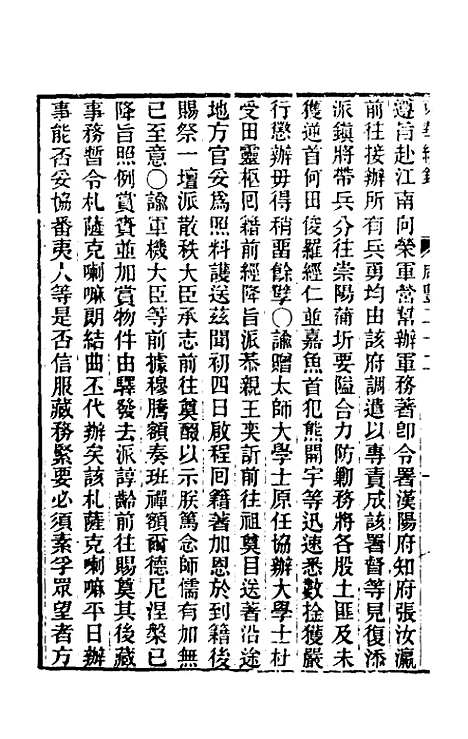 遵旨赴江南向榮軍營幫辦軍務著卽令署漢陽府知府張汝瀛
前往接辦所有兵勇均由該府調遣以專責成該署督等見復添
派鎮將帶兵分往崇陽蒲圻要隘合力防勦務將各股土匪及未
獲逆首何田俊羅經仁並嘉魚首犯熊開宇等迅速悉數拴獲嚴
行懲辦毋得稍留餘孽〇諭贈太師大學士原任協辦大學士杜
受田靈柩回籍前經降旨派恭親王奕訢前往祖奠目送著沿途
地方官妥爲照料護送茲聞初四日啟程回籍著加恩於到籍後
賜祭一壇派散秩大臣承志前往奠醊以示朕篤念師儒有加無
已至意〇諭軍機大臣等前據穆騰額奏班禪額爾德尼涅槃已
降旨照例賞賚並加賞物件由驛發去派諄齡前往賜奠其後藏
事務暫令札薩克喇嘛朗結曲丕代辦矣該札薩克喇嘛平日辦
事能否妥協番夷人等是否信服藏務緊要必須素孚眾望者方